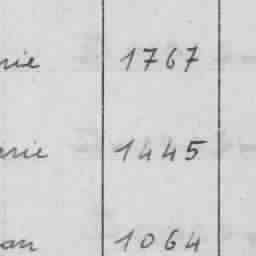 rie 1767
erie 1445
an 1064